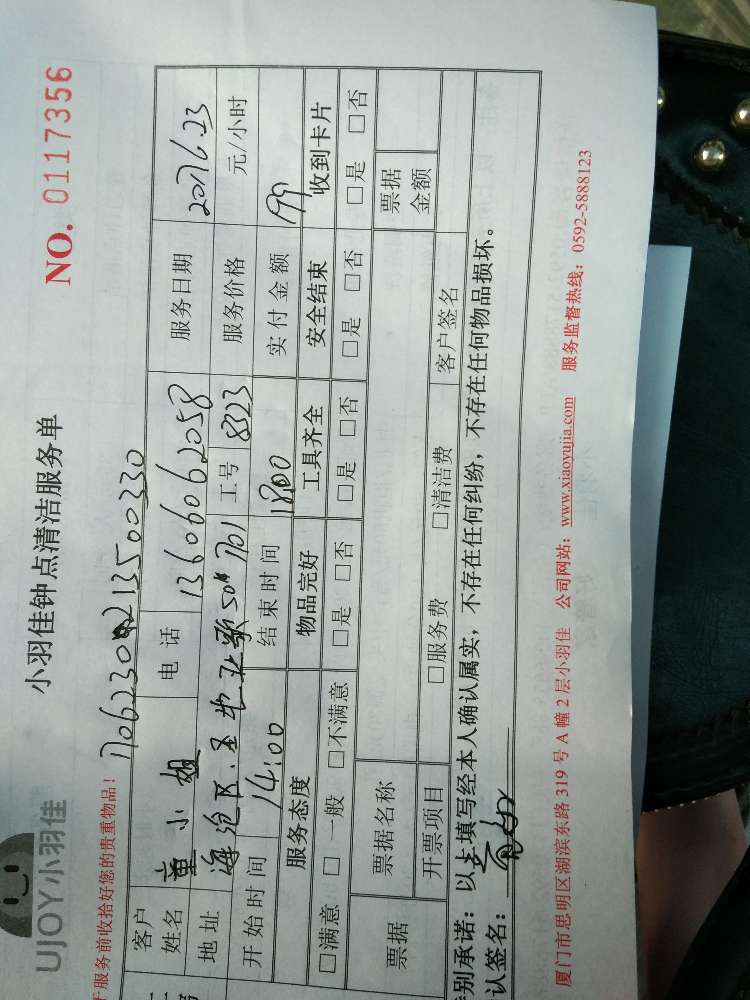 UJOY小羽佳
小羽佳钟点清洁服务单
NO. 0117356
服务前收拾好您的贵重物品！
客户姓名 童小姐 电话 13606062058 服务日期 2017.6.23
地址 海沧区 701 工号 8323 服务价格 元/小时
开始时间 14:00 结束时间 1800 实付金额 199
服务态度 物品完好 工具齐全 安全结束 收到卡片
□满意 □一般 □不满意 □是 □否 □是 □否 □是 □否 □是 □否
票据 票据名称 票据金额
开票项目 □服务费 □清洁费 客户签名
别承诺：以上填写经本人确认属实，不存在任何纠纷，不存在任何物品损坏。
认签名：
厦门市思明区湖滨东路 319 号 A 幢 2 层小羽佳 公司网站：www.xiaoyujia.com 服务监督热线：0592-5888123